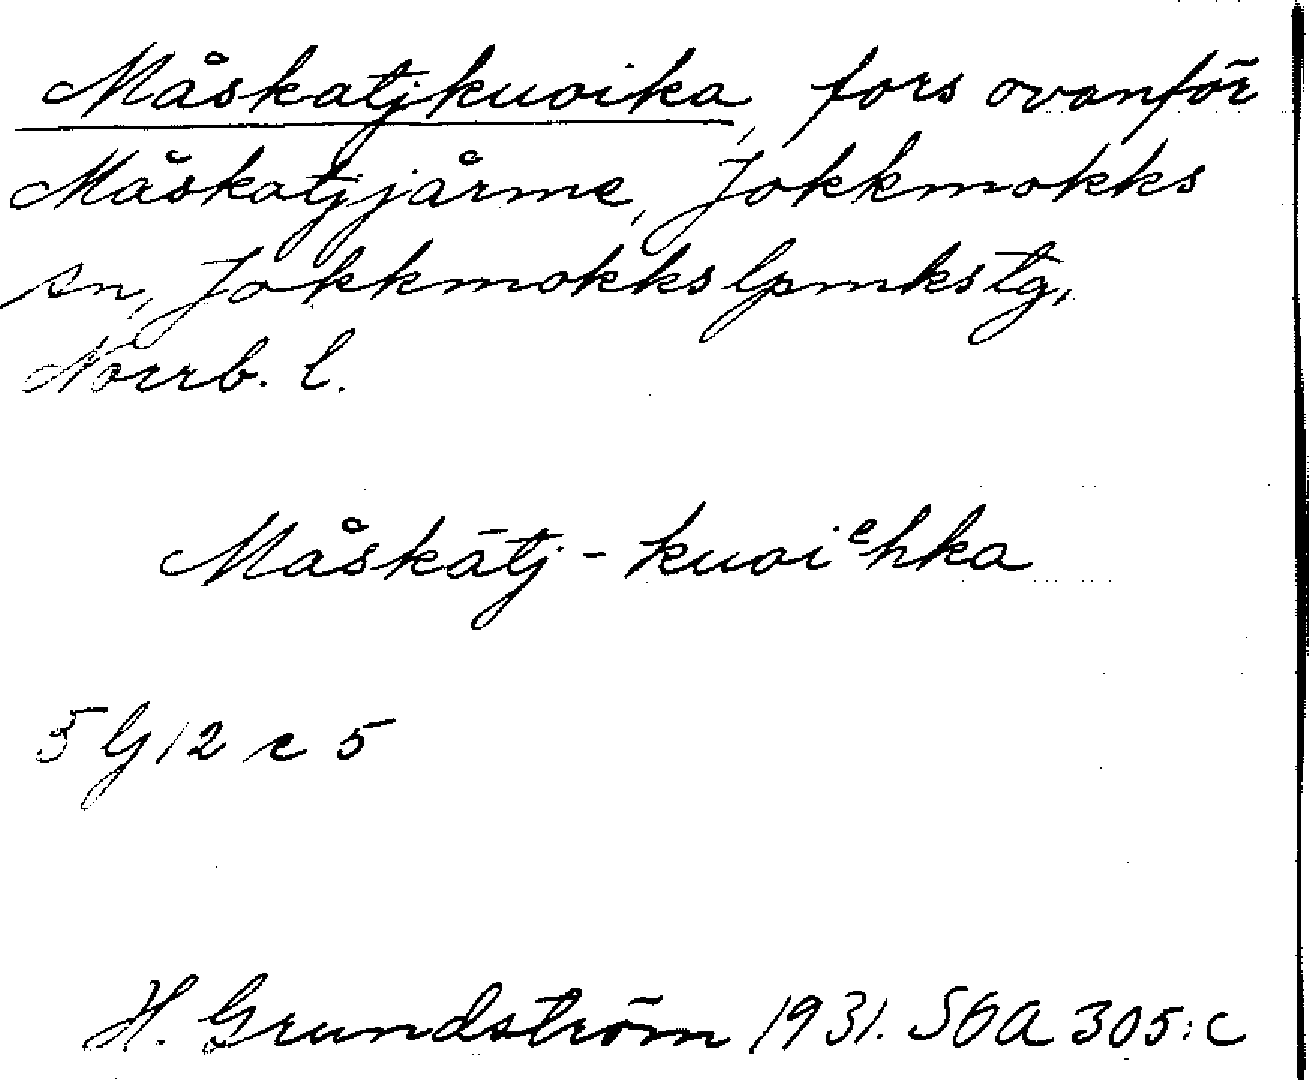 Måskatjkuoika, fors ovanför
Måskatjjårme, Jokkmokks
sn, Jokkmokks lpmkstg,
Norrb. l.
Måskātj-kuoiᵉhka
5 G 12 c 5
H. Grundström 1931. SOA 305:c